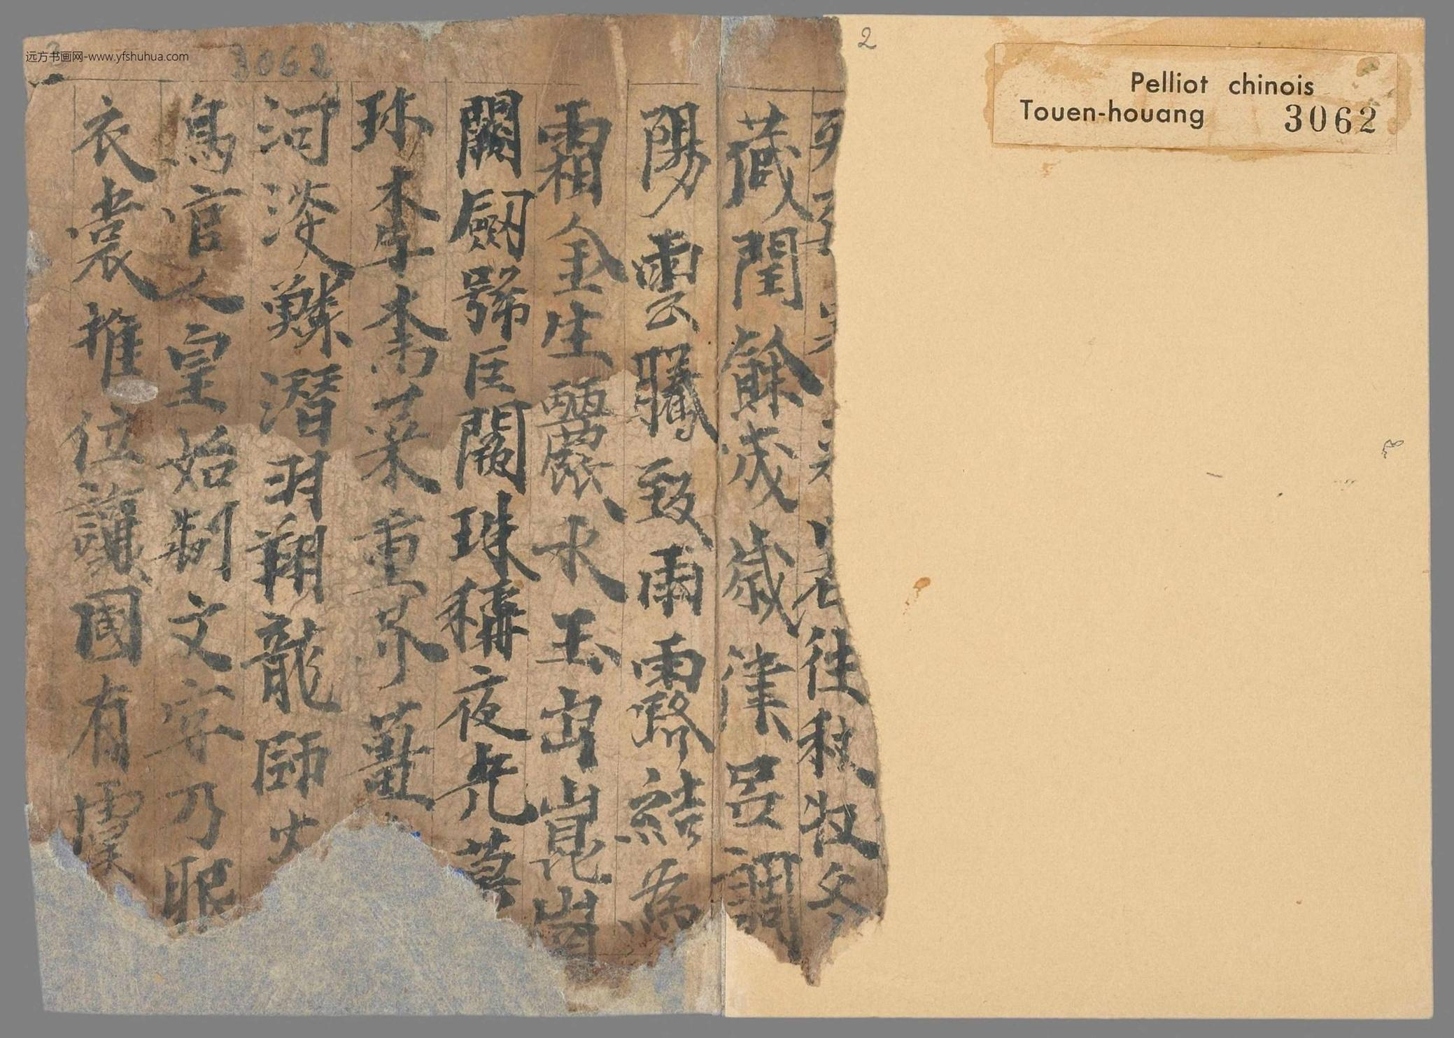 列張寒來暑往秋收冬
藏閏餘成歲律呂調
陽雲騰致雨露結為
霜金生麗水玉出崑崗
闕劒號巨闕珠稱夜光菓
珎李柰菜重芥薑
河淡鱗潛羽翔龍師火
鳥官人皇始制文字乃服
衣裳推位讓國有虞
3062
2
Pelliot chinois
Touen-houang 3062
远方书画网-www.yfshuhua.com